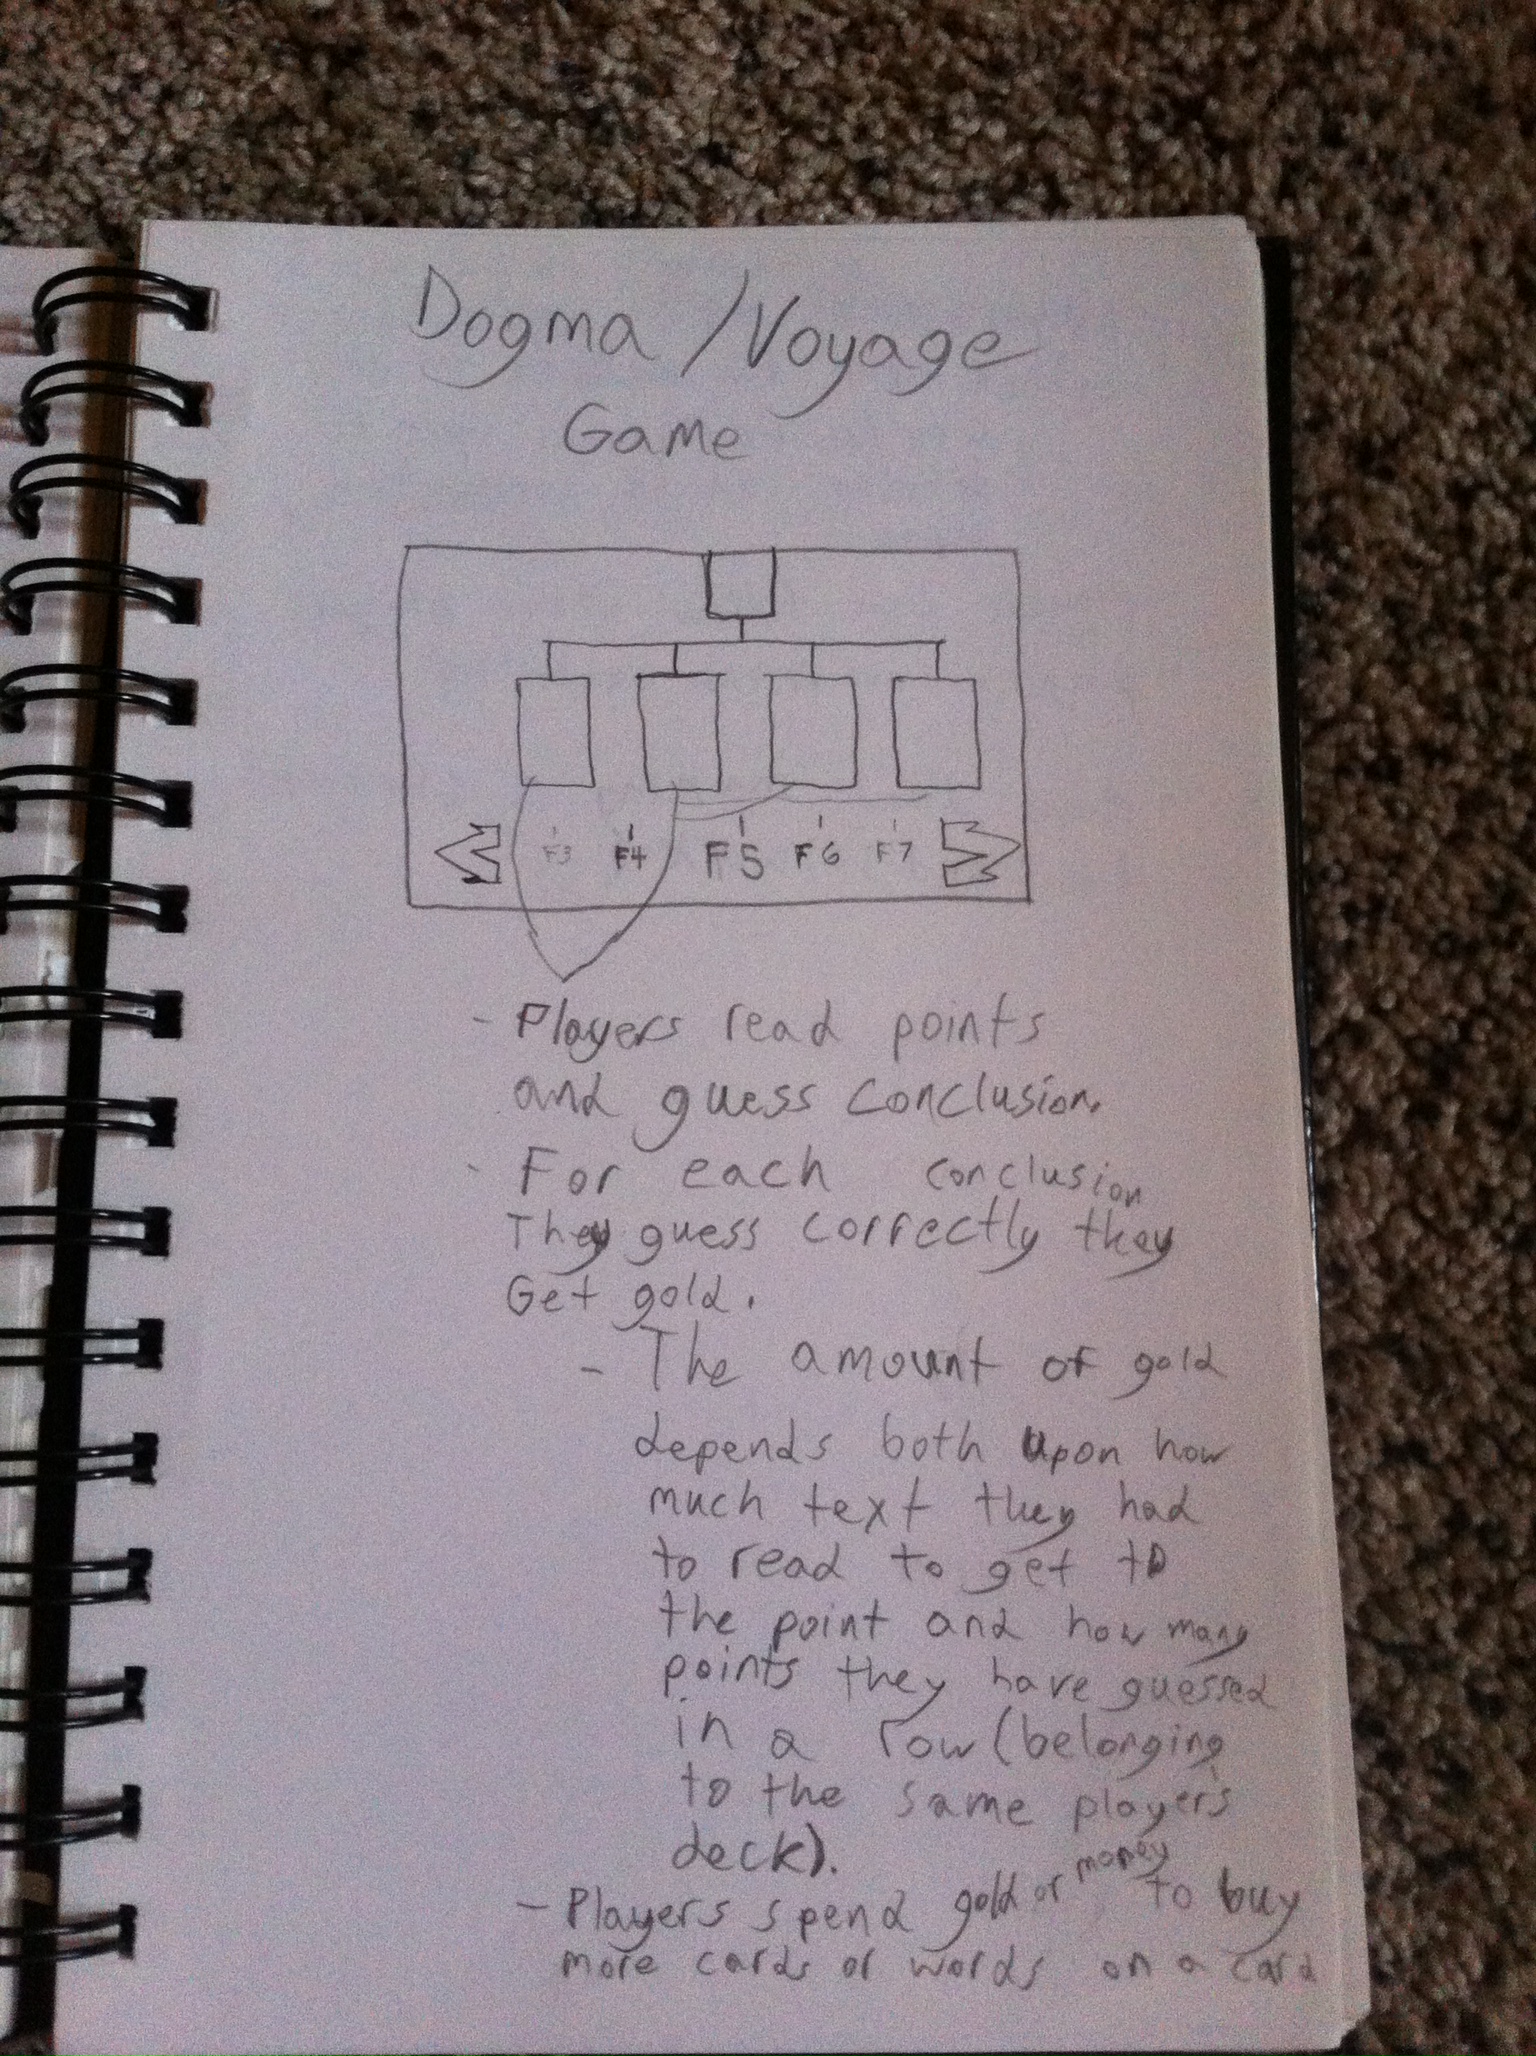 Dogma / Voyage
Game
F3 F4 F5 F6 F7
- Players read points
and guess conclusion.
- For each conclusion
They guess correctly they
Get gold.
- The amount of gold
depends both upon how
much text they had
to read to get to
the point and how many
points they have guessed
in a row (belonging
to the same player's
deck).
- Players spend gold or money to buy
more cards or words on a card